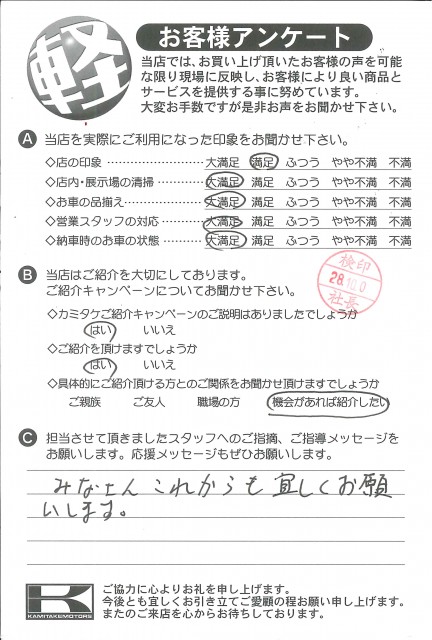 軽
お客様アンケート
当店では、お買い上げ頂いたお客様の声を可能
な限り現場に反映し、お客様により良い商品と
サービスを提供する事に努めています。
大変お手数ですが是非お声をお聞かせ下さい。
A 当店を実際にご利用になった印象をお聞かせ下さい。
◇店の印象 ………………… 大満足 満足 ふつう やや不満 不満
◇店内・展示場の清掃 ……… 大満足 満足 ふつう やや不満 不満
◇お車の品揃え ……………… 大満足 満足 ふつう やや不満 不満
◇営業スタッフの対応 ……… 大満足 満足 ふつう やや不満 不満
◇納車時のお車の状態 ……… 大満足 満足 ふつう やや不満 不満
B 当店はご紹介を大切にしております。
ご紹介キャンペーンについてお聞かせ下さい。
検印
28.10.
社長
◇カミタケご紹介キャンペーンのご説明はありましたでしょうか
はい いいえ
◇ご紹介を頂けますでしょうか
はい いいえ
◇具体的にご紹介頂ける方とのご関係をお聞かせ頂けますでしょうか
ご親族 ご友人 職場の方 機会があれば紹介したい
C 担当させて頂きましたスタッフへのご指摘、ご指導メッセージを
お願いします。応援メッセージもぜひお願いします。
みなさん これからも 宜しくお願
いします。
K
KAMITAKEMOTORS
ご協力に心よりお礼を申し上げます。
今後とも宜しくお引き立てご愛顧の程お願い申し上げます。
またのご来店を心からお待ちしております。